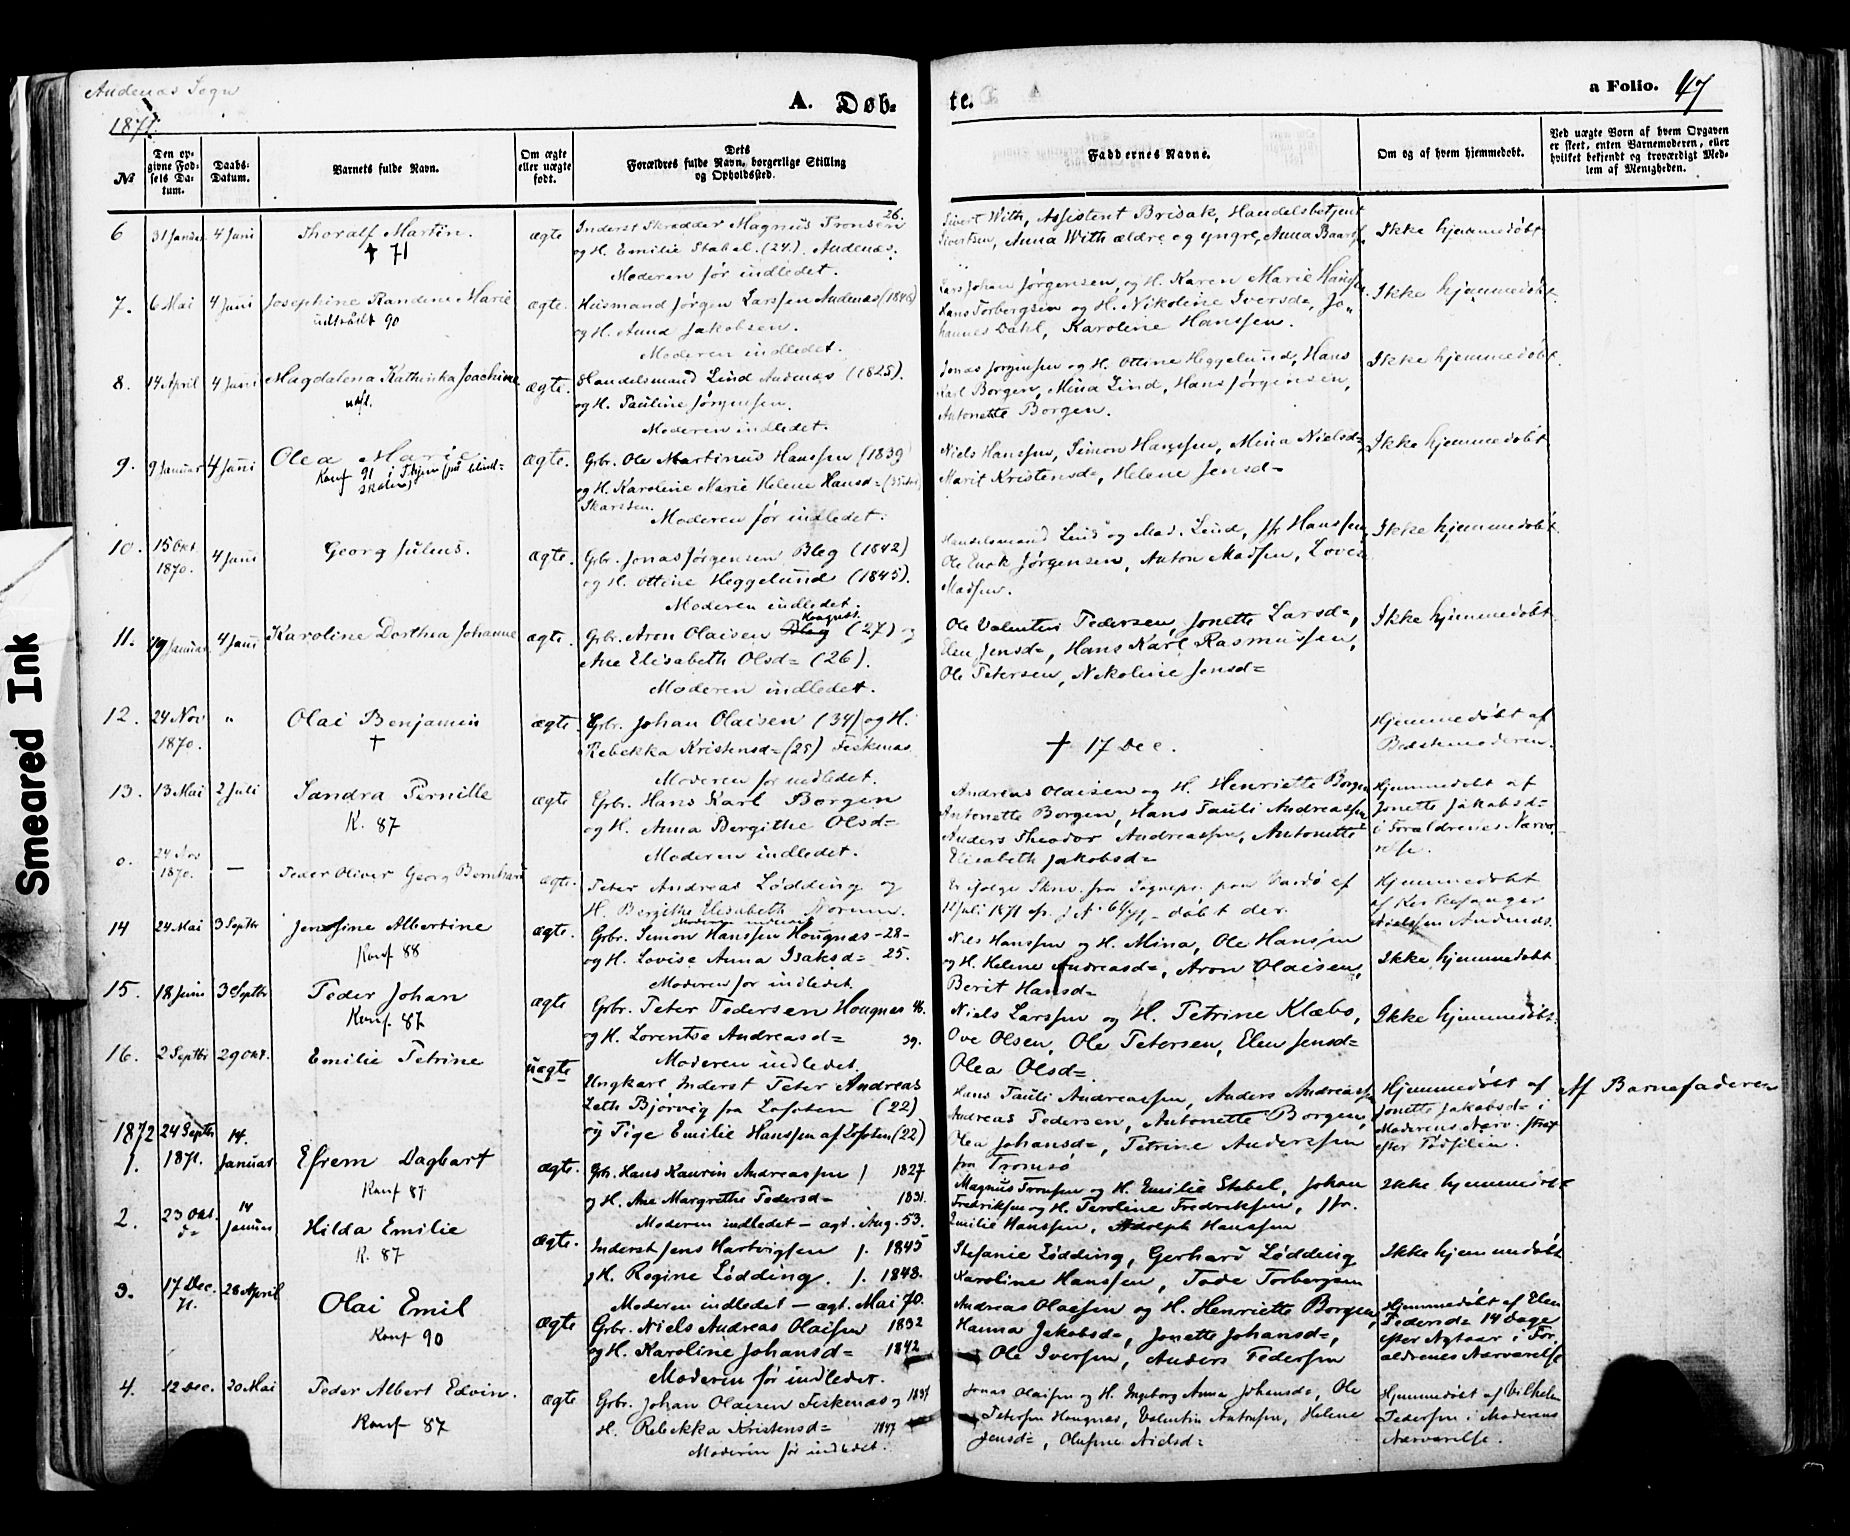 Andenæs Sogn
1871.
A. Døb-
te.
a Folio. 47
№
Den opgivne Fødsels Datum.
Daabs-Datum.
Barnets fulde Navn.
Om ægte eller uægte født.
Dets Forældres fulde Navn, borgerlige Stilling og Opholdssted.
Faddernes Navne.
Om og af hvem hjemmedøbt.
Ved uægte Børn af hvem Opgaven er skeet, enten Barnemoderen, eller hvilket bekjendt og troværdigt Medlem af Menigheden.
6 31 Januar 4 Juni Thoralf Martin. ægte Inderst Skrædder Magnus Tronsen 26.
† 71 og H. Emilie Stabel. (24). Andenæs.
Moderen før indledet.
Sivert With, Assistent Brisak, Handelsbetjent
Sivertsen, Anna With ældre og yngre, Anna Baars
Ikke hjemmedøbt.
7. 6 Mai 4 Juni Josephine Randine Marie ægte. Huusmand Jørgen Larssen Andenæs (1846)
udtrådt 90 og H. Anna Jakobsen.
Moderen indledet.
Lars Johan Jørgensen og H. Karen Marie Hanssen
Hans Torbergsen og H. Nikoline Iversd=, Jo-
hannes Dahl, Karoline Hanssen.
Ikke hjemmedøbt.
8. 14 April 4 Juni Magdalena Kathinka Joachime ægte. Handelsmand Lind Andenæs (1825).
udfl. og H. Pauline Jørgensen.
Moderen indledet.
Jonas Jørgensen og H. Ottine Heggelund, Hans
Karl Borgen, Mina Lind, Hans Jørgensen,
Antonette Borgen.
Ikke hjemmedøbt.
9. 9 Januar 4 Juni Olea Marie ægte. Grbr. Ole Martinus Hanssen (1839)
Konf 91 i Thjem (på blind=
skolen) og H. Karoline Marie Helene Hansd=
Skarsten.
Moderen før indledet.
Niels Hanssen, Simon Hanssen, Mina Nielsd=,
Marit Kristensd=, Helene Jensd=
Ikke hjemmedøbt.
10. 15 Okt. 1870. 4 Juni Georg Julius. ægte. Grbr. Jonas Jørgensen Bleg (1842)
og H. Ottine Heggelund (1845).
Moderen indledet.
Handelsmand Lind og Mad. Lind, Jfr Hanssen,
Ole Enok Jørgensen, Anton Madsen, Lovise
Madsen.
Ikke hjemmedøbt.
11. 19 Januar 4 Juni Karoline Dorthea Johanne ægte. Grbr. Aron Olaisen Bleg Hougnæs (27) og
Ane Elisabeth Olsd= (26).
Moderen indledet.
Ole Valentin Pedersen, Jonette Larsd=,
Elen Jensd=, Hans Karl Rasmussen,
Ole Petersen, Nikoline Jensd=
Ikke hjemmedøbt.
12. 24 Nov 1870. " Olai Benjamin ægte. Grbr. Johan Olaisen (34) og H.
† Rebekka Kristensd= (25) Feskenæs
Moderen før indledet.
† 17 Dec.
Hjemmedøbt af
Bedstemoderen.
13. 13 Mai 2 Juli Sandra Pernille ægte Grbr. Hans Karl Borgen
K. 87 og H. Anna Bergithe Olsd=
Moderen indledet.
Andreas Olaisen og H. Henriette Borgen
Antonette Borgen, Hans Pauli Andreassen
Anders Theodor Andreassen, Antonette
Elisabeth Jakobsd=
Hjemmedøbt af
Jonette Jakobsd=
i Forældrenes Nærvæ-
relse.
o. 24 Nov 1870. — Peder Oliver Georg Bernhard ægte. Peter Andreas Lødding og
H. Bergithe Elisabeth Norum.
Moderen indledet
Er ifølge Skriv. fra Sognepr. paa Vardø af
12 Juli 1871 døbt der.
Hjemmedøbt
af Kirkesanger
Nielsen Andenæs.
14 24 Mai 3 Septbr Jensine Albertine ægte. Grbr. Simon Hanssen Hougnæs - 28 -
Konf 88 og H. Lovise Anna Isaksd= 25.
Moderen før indledet.
Niels Hanssen og H. Mina, Ole Hansen
og H. Helene Andreasd=, Aron Olaisen,
Berit Hansd=
Ikke hjemmedøbt
15. 18 Juni 3 Septbr Peder Johan ægte Grbr. Peter Pedersen Hougnæs 46.
Konf. 87 og H. Lorentse Andreasd= 39.
Moderen indledet.
Niels Larssen og H. Petrine Klæbo,
Ove Olsen, Ole Petersen, Elen Jensd=
Olea Olsd=.
Ikke hjemmedøbt.
16. 2 Septbr 29 Okt. Emilie Petrine uægte Ungkarl Inderst Peter Andreas
Zeth Bjørvig fra Lofoten (22)
og Pige Emilie Hanssen af Lofoten (22)
Hans Pauli Andreassen, Anders Andreassen
Andreas Pedersen, Antonette Borgen,
Olea Johansd=, Petrine Anderssen
fra Tromsø
Hjemmedøbt af
Jonette Jakobsd= i
Moderens Nærv. strax
efter Fødselen.
Af Barnefaderen
1872
1. 24 Septbr 1871. 14. Januar Efrem Dagbart ægte. Grb. Hans Kaurin Andreassen f 1827
Konf 87 og H. Ane Margrethe Pedersd= 1831.
Moderen indledet — ægt. Aug. 53.
Magnus Tronsen og H. Emilie Stabel, Johan
Fredriksen og H. Peroline Fredriksen, Jfr.
Emilie Hanssen, Adolph Hanssen
Ikke hjemmedøbt
2. 23 Okt. d= 14 Januar Hilda Emilie ægte. Inderst Jens Hartvigsen f. 1845
K. 87 og H. Regine Lødding. f. 1848.
Moderen indledet — ægt. Mai 70.
Stefanie Lødding, Gerhard Lødding
Karoline Hanssen, Tode Torbergsen
Ikke hjemmedøbt
3. 17 Dec. 71. 28 April Olai Emil ægte Grbr. Niels Andreas Olaisen 1832
Konf 90 og H. Karoline Johansd= 1842
Moderen før indledet.
Andreas Olaisen og H. Henriette Borgen,
Hanna Jakobsd=, Jonette Johansd=,
Ole Iversen, Anders Pedersen
Hjemmedøbt af Elen
Pedersd= 14 Dage
efter Nytaar i For-
ældrenes Nærværelse
4. 12 Dec. 20 Mai Peder Albert Edvin. ægte Grbr. Johan Olaisen Feskenæs og 1837
Konf 87 H. Rebekka Kristensd= 1847
Moderen før indledet.
Jonas Olaisen og H. Ingeborg Anna Johansd=, Ole
Petersen Hougnæs, Valentin Antonsen, Helene
Jensd=, Olufine Nielsd=
Hjemmedøbt af Vilhelm
Pedersen i Moderens
Nærværelse.
Smeared Ink